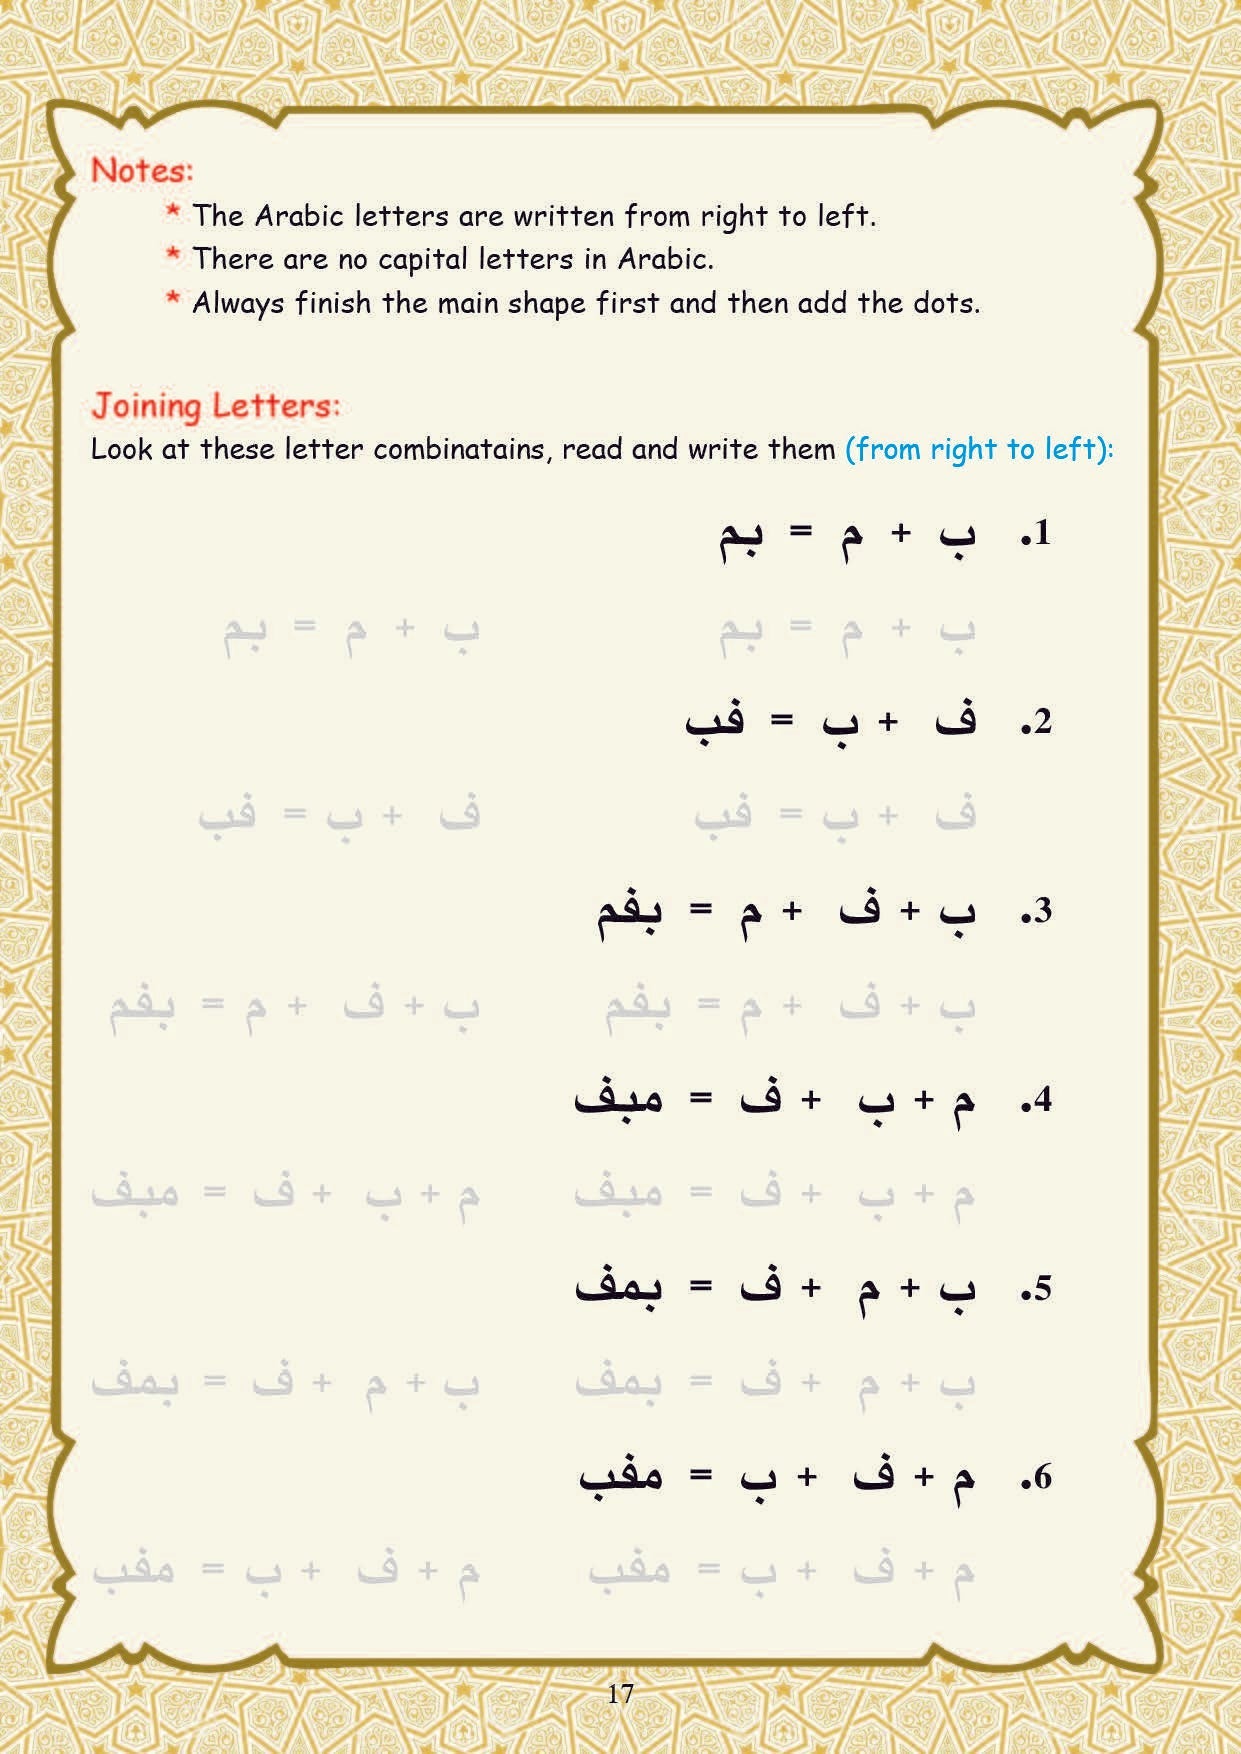 Notes:
* The Arabic letters are written from right to left.
* There are no capital letters in Arabic.
* Always finish the main shape first and then add the dots.
Joining Letters:
Look at these letter combinatains, read and write them (from right to left):
1. ب + م = بم
ب + م = بم ب + م = بم
2. ف + ب = فب
ف + ب = فب ف + ب = فب
3. ب + ف + م = بفم
ب + ف + م = بفم ب + ف + م = بفم
4. م + ب + ف = مبف
م + ب + ف = مبف م + ب + ف = مبف
5. ب + م + ف = بمف
ب + م + ف = بمف ب + م + ف = بمف
6. م + ف + ب = مفب
م + ف + ب = مفب م + ف + ب = مفب
17